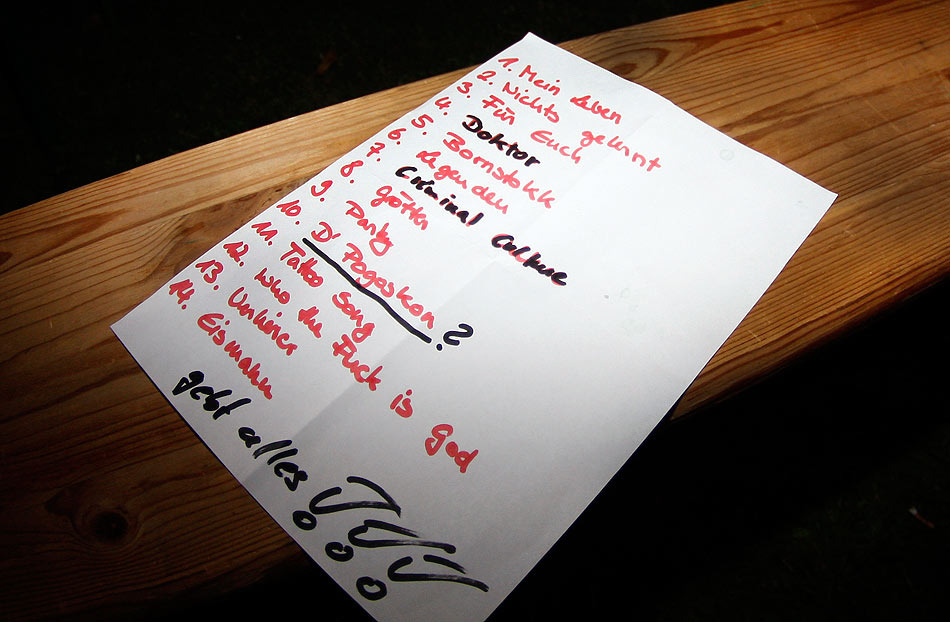 1. Mein Leben
2. Nichts gelernt
3. Für Euch
4. Doktor
5. Bornstokk
6. Legenden
7. Criminal Culture
8. Götter
9. Party
10. D' Pogoskon ?
11. Tattoo Song
12. Who the Fuck is God
13.
14. Eismann
gebt alles !!!